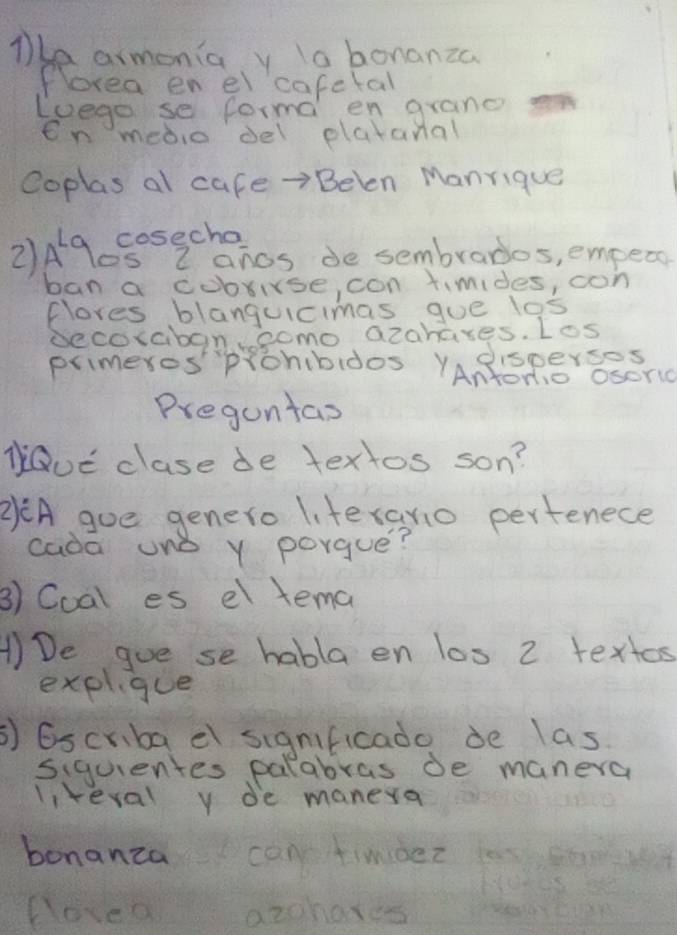 1) La armonía y la bonanza
florea en el cafetal
Luego se forma en grano
en medio del platanal
Coplas al cafe → Belen Manrique
La cosecha
2) A los 2 años de sembrados, empeza
ban a cubrirse, con timides, con
flores blanquicimas que los
decoraban como azahares. Los
primeros prohibidos y dispersos
Antonio Osorio
Preguntas
1) ¿Qué clase de textos son?
2) ¿A que genero literario pertenece
cada uno y porque?
3) Cual es el tema
4) De que se habla en los 2 textos
explique
5) Escriba el significado de las
siguientes palabras de manera
literal y de manera
bonanza con timidez
florea azahares